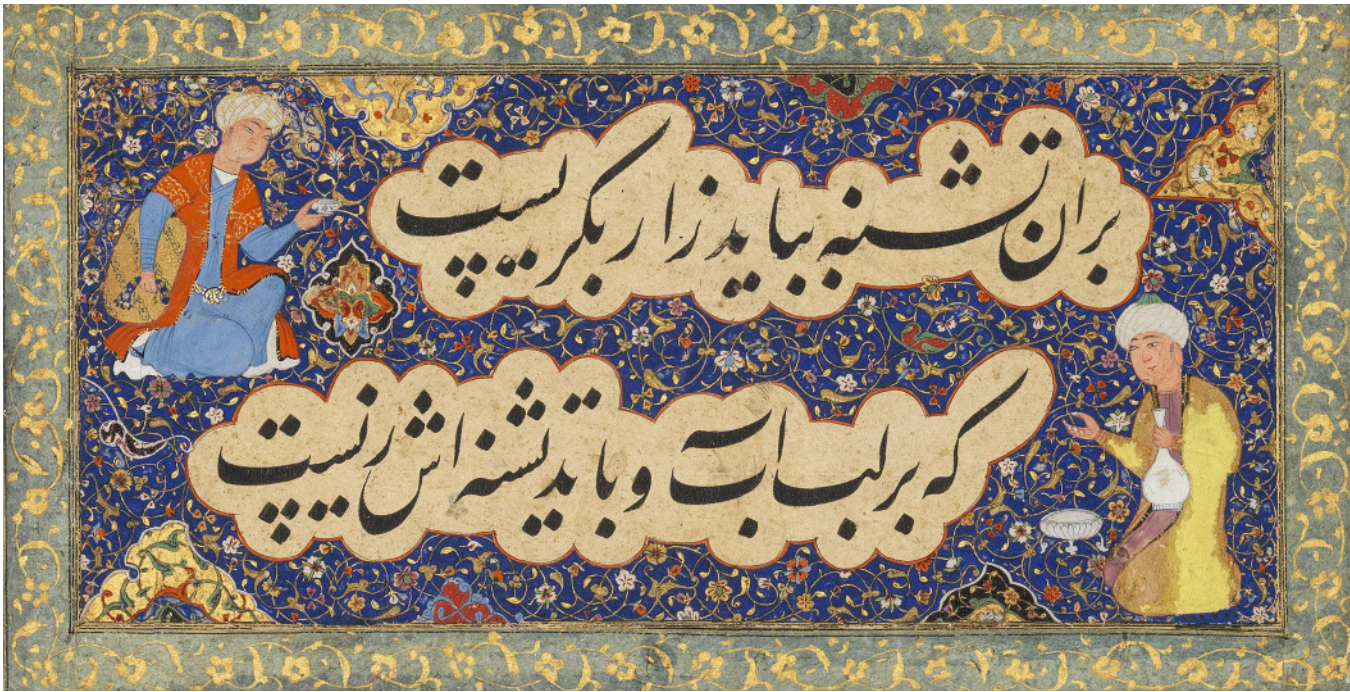 بران تشنه بباید زار بکریست
که بر لب آب و باید تشنه اش زیست